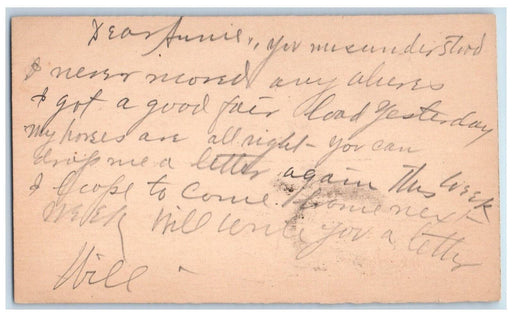 Dear Annie, you misunderstood
I never moved any wheres
I got a good fair load yesterday
my horses are all right - you can
drop me a letter again this week
I hope to come home next
week Will write you a letter
Will -